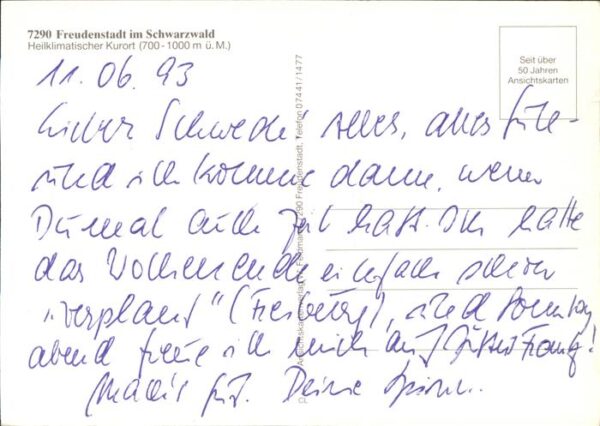 7290 Freudenstadt im Schwarzwald
Heilklimatischer Kurort (700-1000 m ü. M.)
Seit über
50 Jahren
Ansichtskarten
11.06.93
Lieber Schwede! Alles, alles Gute -
und ich komme dann, wenn
Du mal auch Zeit hast. Ich hatte
das Wochenende einfach schon
"verplant" (Freiburg), und Sonntag
abend freue ich mich auf
Mach's gut. Deine
7290 Freudenstadt, Telefon 07441/1477